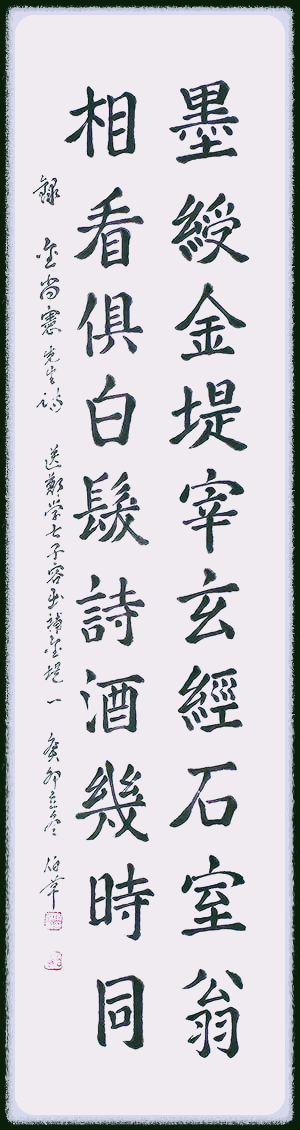 墨綬金堤宰玄經石室翁
相看俱白髮詩酒幾時同
錄 金尚憲先生詩 送鄭學士子容出補金堤一 癸卯立冬